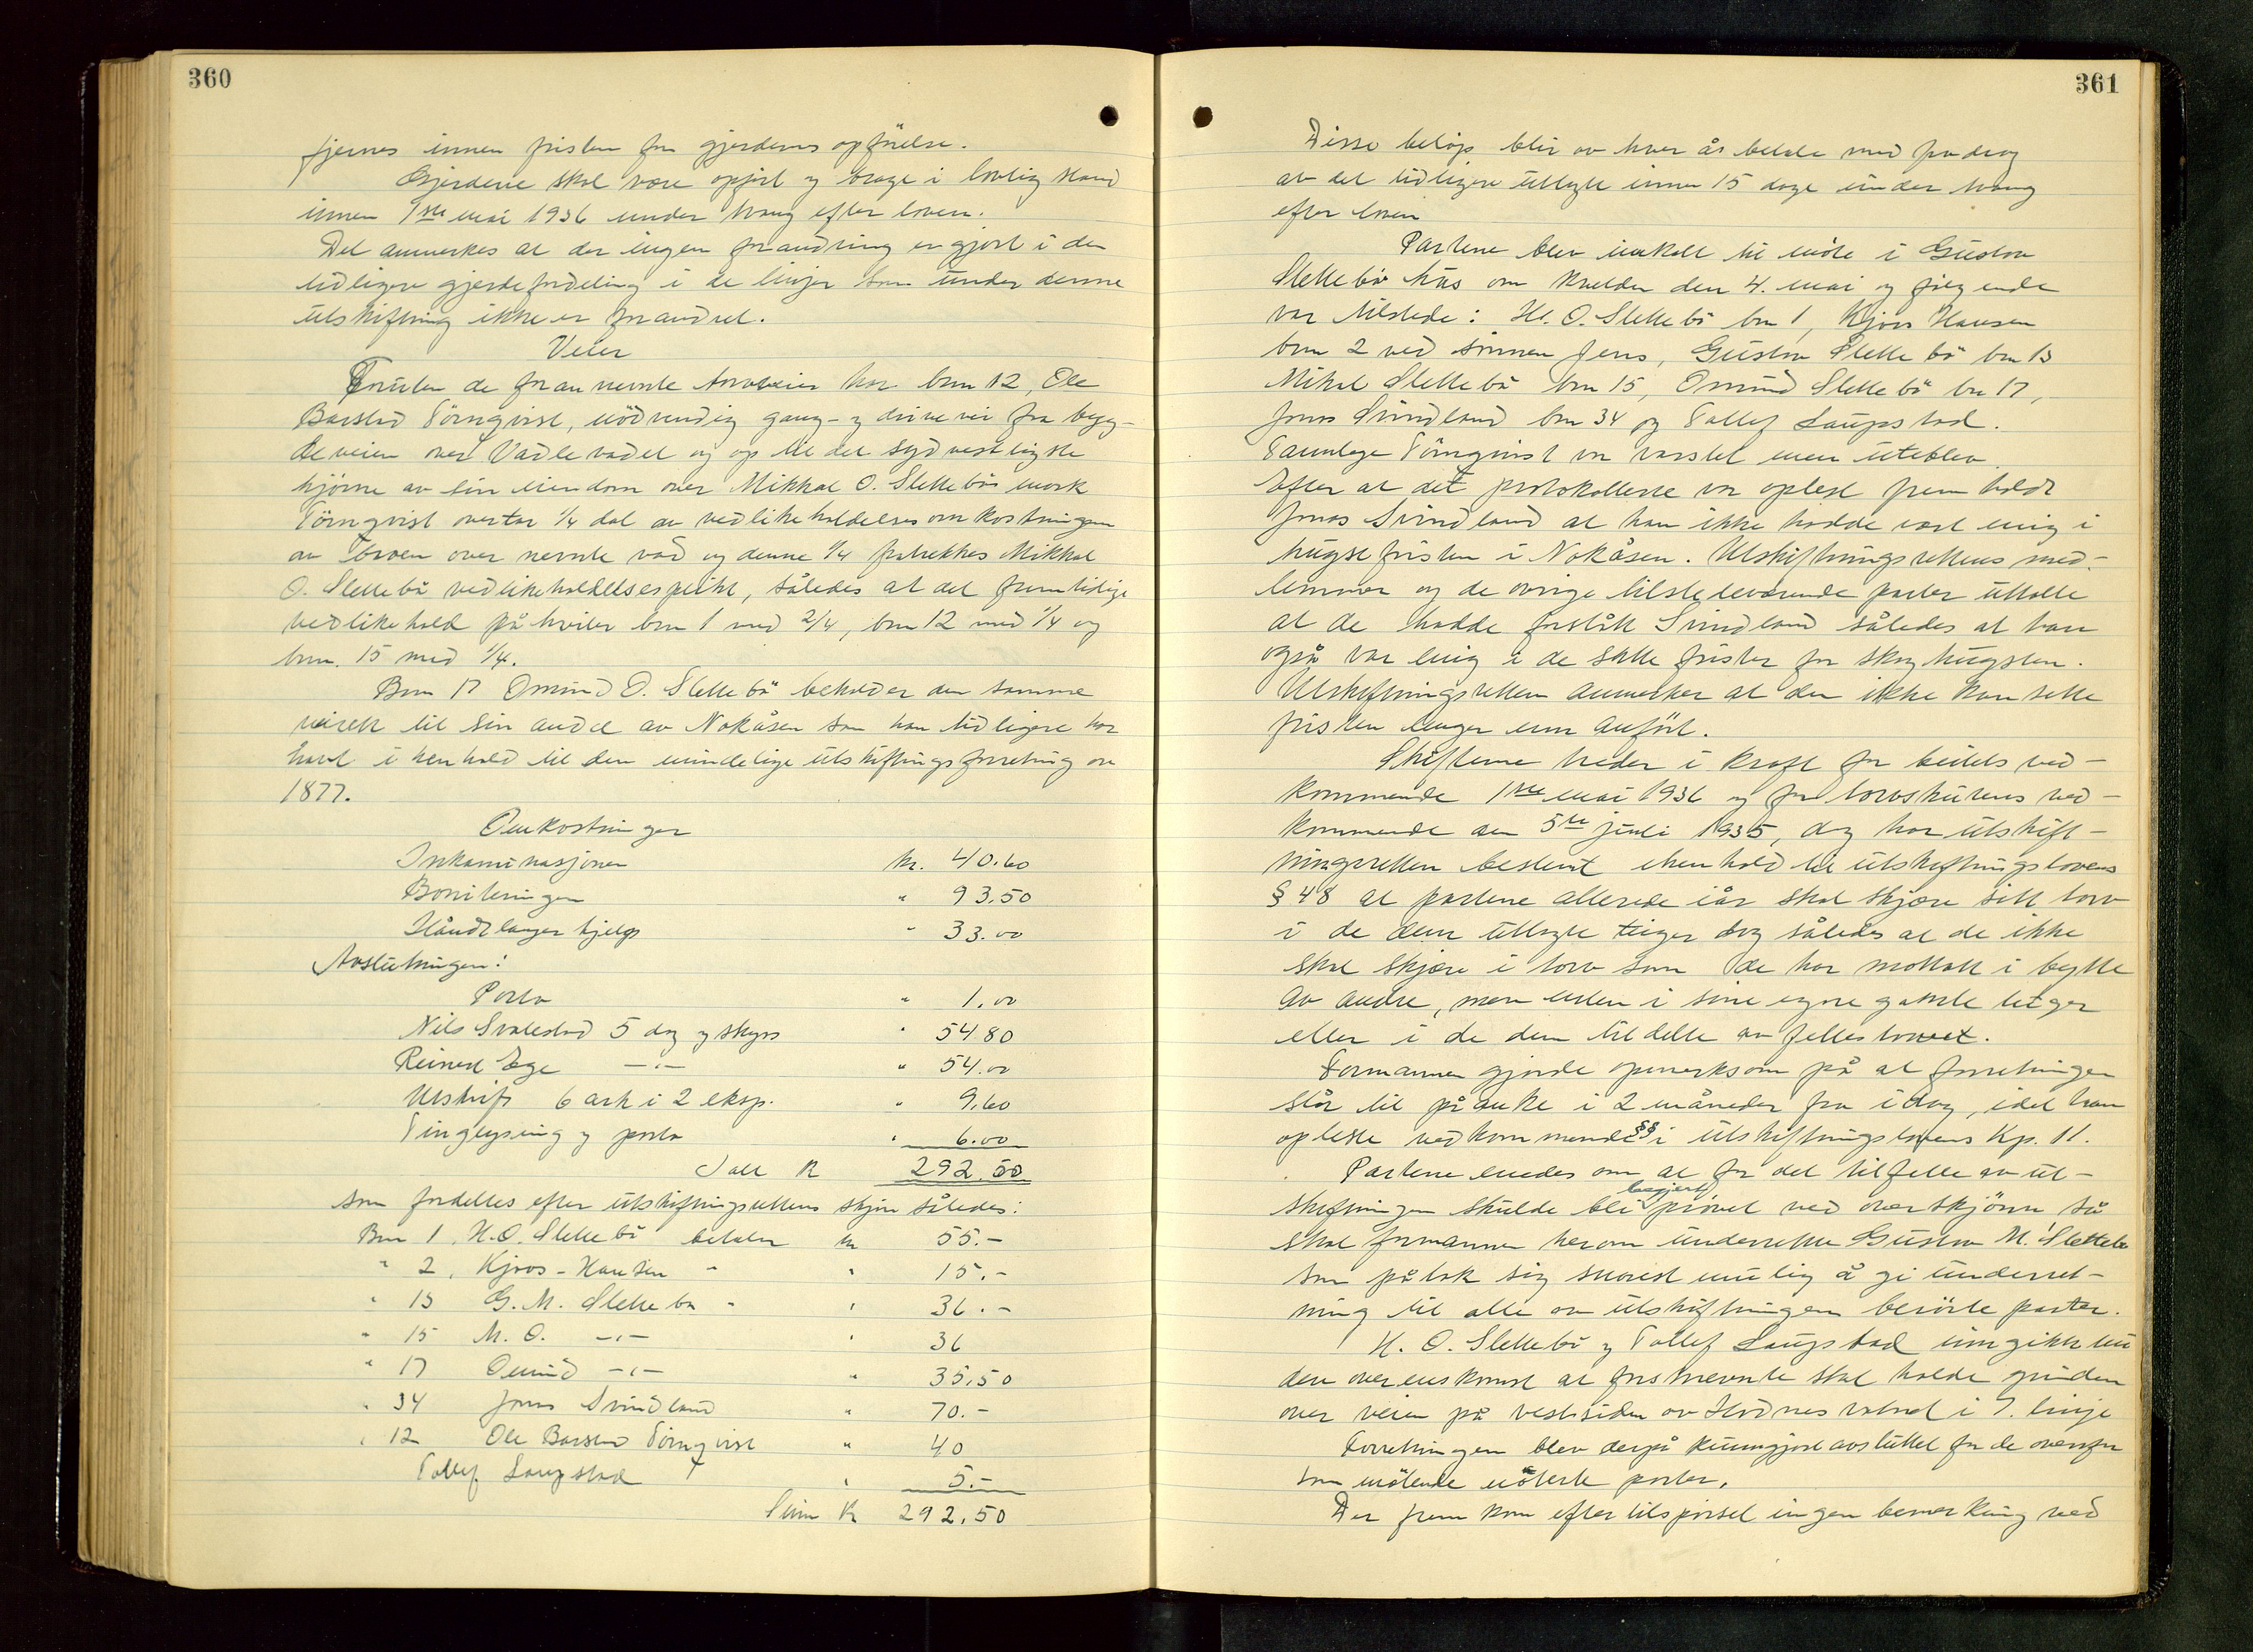 360
fjernes innen fristen for gjerdenes opførelse.
Gjerdene skal være opført og bragt i lovlig stand
innen 1ste mai 1936 under tvang efter loven.
Det anmerkes at der ingen forandring er gjort i den
tidligere gjerdefordeling i de linjer som under denne
utskiftning ikke er forandret.
Veier
Foruten de foran nevnte torvveier har bnr 12, Ole
Barstad Törnqvist, nödvendig gang- og drivevei fra byg-
deveien over Vadlevadet og op til det sydvestligste
hjörne av sin eiendom over Mikkal O. Slettebös mark
Törnqvist overtar 1/4 del av vedlikeholdelsesomkostningen
av broen over nevnte vad og denne 1/4 fratrekkes Mikkal
O. Slettebö vedlikeholdelsesplikt, således at det fremtidige
vedlikehold påhviler bnr 1 med 2/4, bnr 12 med 1/4 og
bnr. 15 med 1/4.
Bnr 17 Omund O. Slettebö beholder den samme
veirett til sin andel av Nokåsen som han tidligere har
havt i henhold til den mindelige utskiftningsforretning av
1877.
Omkostninger
Inkaminasjonen kr. 40.60
Boniteringen " 93.50
Håndlanger hjelp " 33.00
Avslutningen:
Porto " 1.00
Nils Svalestad 5 dag og skyss " 54 80
Reinert Ege -"- " 54.00
Utskrift 6 ark i 2 eksp. " 9.60
Tinglysing og porto " 6.00
Ialt Kr 292.50
som fordelles efter utskiftningsrettens skjön således:
Bnr 1. H.O. Slettebö betaler kr 55.-
" 2. Kjoos-Hansen " " 15.-
" 13 G.M. Slettebö " " 36.-
" 15 M.O. -"- " 36
" 17 Omund -"- " 35,50
" 34 Jonas Svindland " 70.-
" 12 Ole Barstad Törnqvist " 40
Tollef Laupstad " 5.-
Sum Kr 292,50
361
Disse beløp blir av hver å betale med fradrag
av det tidligere utlagte innen 15 dage under tvang
efter loven
Partene blev innkalt til möte i Gustav
Slettebö hus om kvelden den 4. mai og fölgende
var tilstede: H. O. Slettebö bnr 1, Kjoos Hansen
bnr 2 ved sönnen Jens, Gustav Slettebö bnr 13
Mikal Slettebö bnr 15, Omund Slettebö bnr 17,
Jonas Svindland bnr 34 og Tollef Laupstad.
Tannlege Törnqvist var varslet men uteblev.
Efter at det protokollerte var oplest fremholdt
Jonas Svindland at han ikke hadde vært enig i
hugstfristen i Nokåsen. Utskiftningsrettens med-
lemmer og de övrige tilstedeværende parter uttalte
at de hadde forstått Svindland således at han
også var enig i de satte frister for skoghugsten.
Utskiftningsretten anmerker at den ikke kan sette
fristen lenger enn anfört.
Skiftene treder i kraft for beitets ved-
kommende 1ste mai 1936 og for torvskurens ved-
kommende den 5te juli 1935, dog har utskift-
ningsretten bestemt i henhold til utskiftningslovens
§ 48 at partene allerede iår skal skjære sitt torv
i de dem utlagte teiger dog således at de ikke
skal skjære i torv som de har mottatt i bytte
av andre, men enten i sine egne gamle teiger
eller i de dem tildelte av fellestorvet.
Formannen gjorde opmerksom på at forretningen
står til påanke i 2 måneder fra idag, idet han
opleste vedkommende §§ i utskiftningslovens Kp. 11.
Partene enedes om at for det tilfelle av ut-
skiftningen skulde bli begjert prövet ved overskjönn så
skal formannen herom underrette Gustav M. Slettebö
som påtok sig snarest mulig å gi underret-
ning til alle av utskiftningen berörte parter.
H. O. Slettebö og Tollef Laupstad inngikk nu
den overenskomst at förstnevnte skal holde grinden
over veien på vestsiden av Hodnesvatnet i 7. linje
Forretningen blev derpå kunngjort avsluttet for de ovenfor
som mötende noterte parter.
Der fremkom efter tilspörsel ingen bemerkning ved